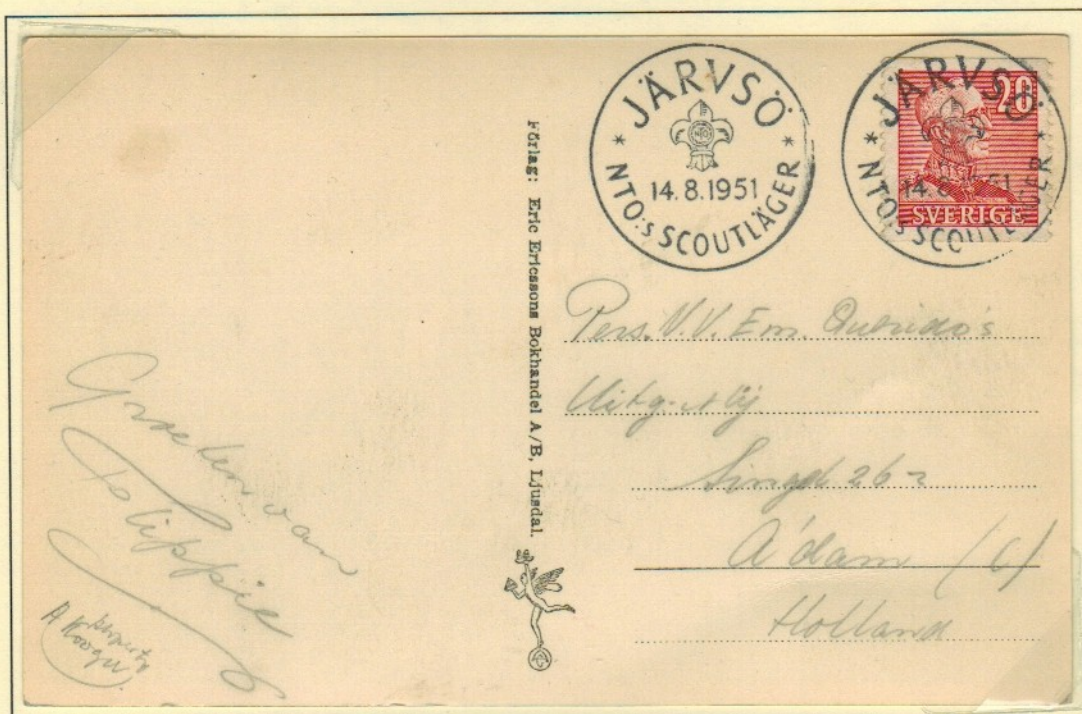 JÄRVSÖ
14.8.1951
* NTO:s SCOUTLÄGER *
JÄRVSÖ
14.8.1951
* NTO:s SCOUTLÄGER *
20
SVERIGE
Förlag: Eric Ericssons Bokhandel A/B, Ljusdal.
Pers. V.V. Em. Querido's
Uitg. Mij
Singel 262
A'dam (C)
Holland
Groeten van